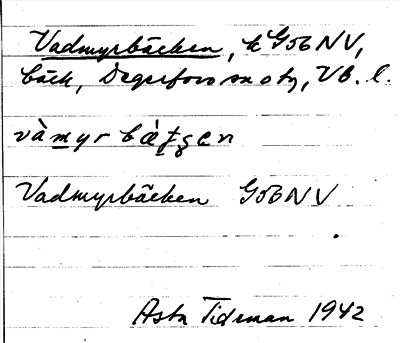 Vadmyrbäcken, k G56NV,
bäck, Degerfors sn o tg, VB. l.
vàmyrbätsen
Vadmyrbäcken G56NV
Asta Tideman 1942